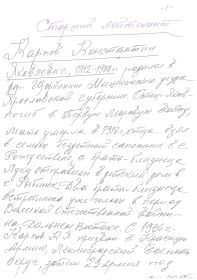 Старший лейтенант
Карпов Константин
Яковлевич, 1912-1988г. родился в
дер. Щербинино уезда
Ярославской губернии. Отец Яков
погиб в Первую Мировую войну,
Мать умерла в 1918г, отца взял
в семью бездетный сапожник в с.
Рождество, а брата-близнеца
Луку отправили в детский дом в
г. Рыбинск. Два брата-близнеца
встретились уже только в период
Великой Отечественной войны
на Дальнем Востоке. С 1936г
Карпов К.Я призван в Красную
Армию, Ленинградский военный
Округ, затем 29 Армия под